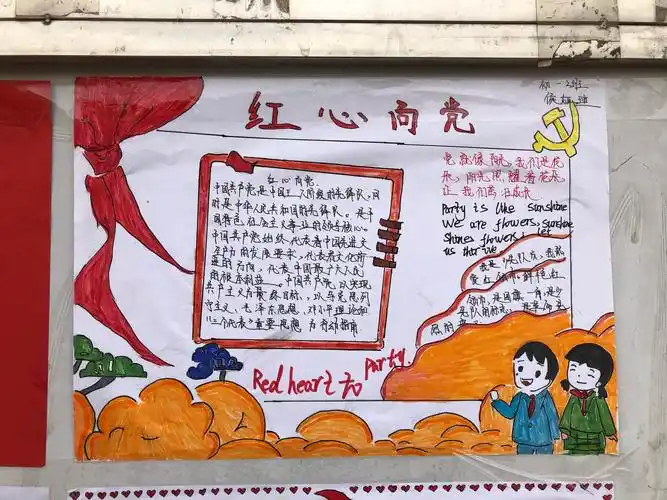 红心向党
初一2班
红心向党
中国共产党是中国工人阶级的先锋队,同
时是中华人民共和国的先锋队。是中
国特色社会主义事业的领导核心
中国共产党始终代表着中国先进
生产力的发展要求,代表着文化前
进的方向,代表中国最广大人民
的根本利益。中国共产党以实现
共产主义为最终目标,以马克思列
宁主义,毛泽东思想,邓小平理论和
三个代表重要思想为行动指南
党就像阳光,我们是花
朵,阳光照耀着花朵
让我们茁壮成长
Party is like sunshine
We are flowers, sunshine
shines flowers, let
us
我是少先队员,我热
爱红领巾,鲜艳的红
领巾,是国旗一角,是少
先队的标志
Red heart to party.